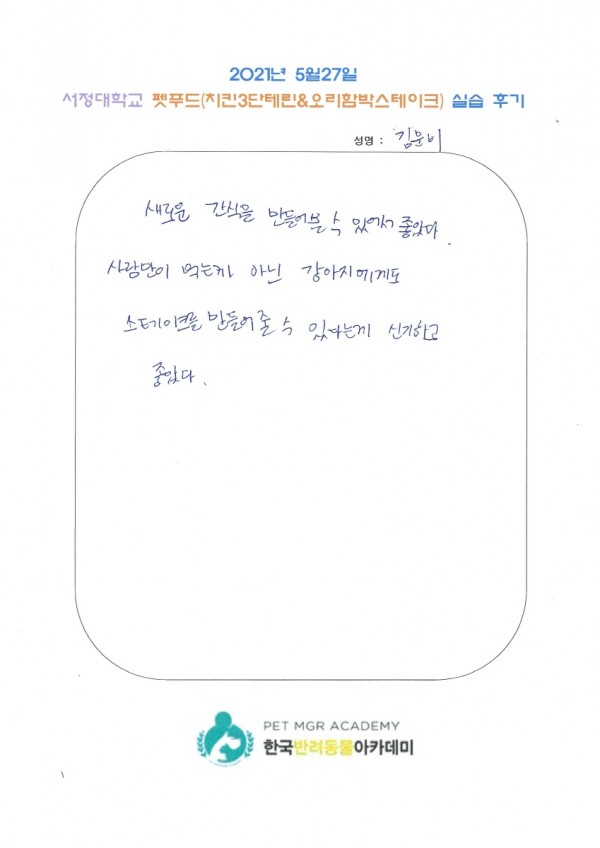 2021년 5월27일
서정대학교 펫푸드(치킨3단테린&오리함박스테이크) 실습 후기
성명 : 김문비
새로운 간식을 만들어볼 수 있어서 좋았다.
사람만이 먹는게 아닌 강아지에게도
스테이크를 만들어 줄 수 있다는게 신기하고
좋았다.
PET MGR ACADEMY
한국반려동물아카데미